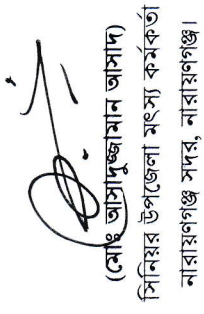 (মোঃ আসাদুজ্জামান আসাদ)
সিনিয়র উপজেলা মৎস্য কর্মকর্তা
নারায়ণগঞ্জ সদর, নারায়ণগঞ্জ।